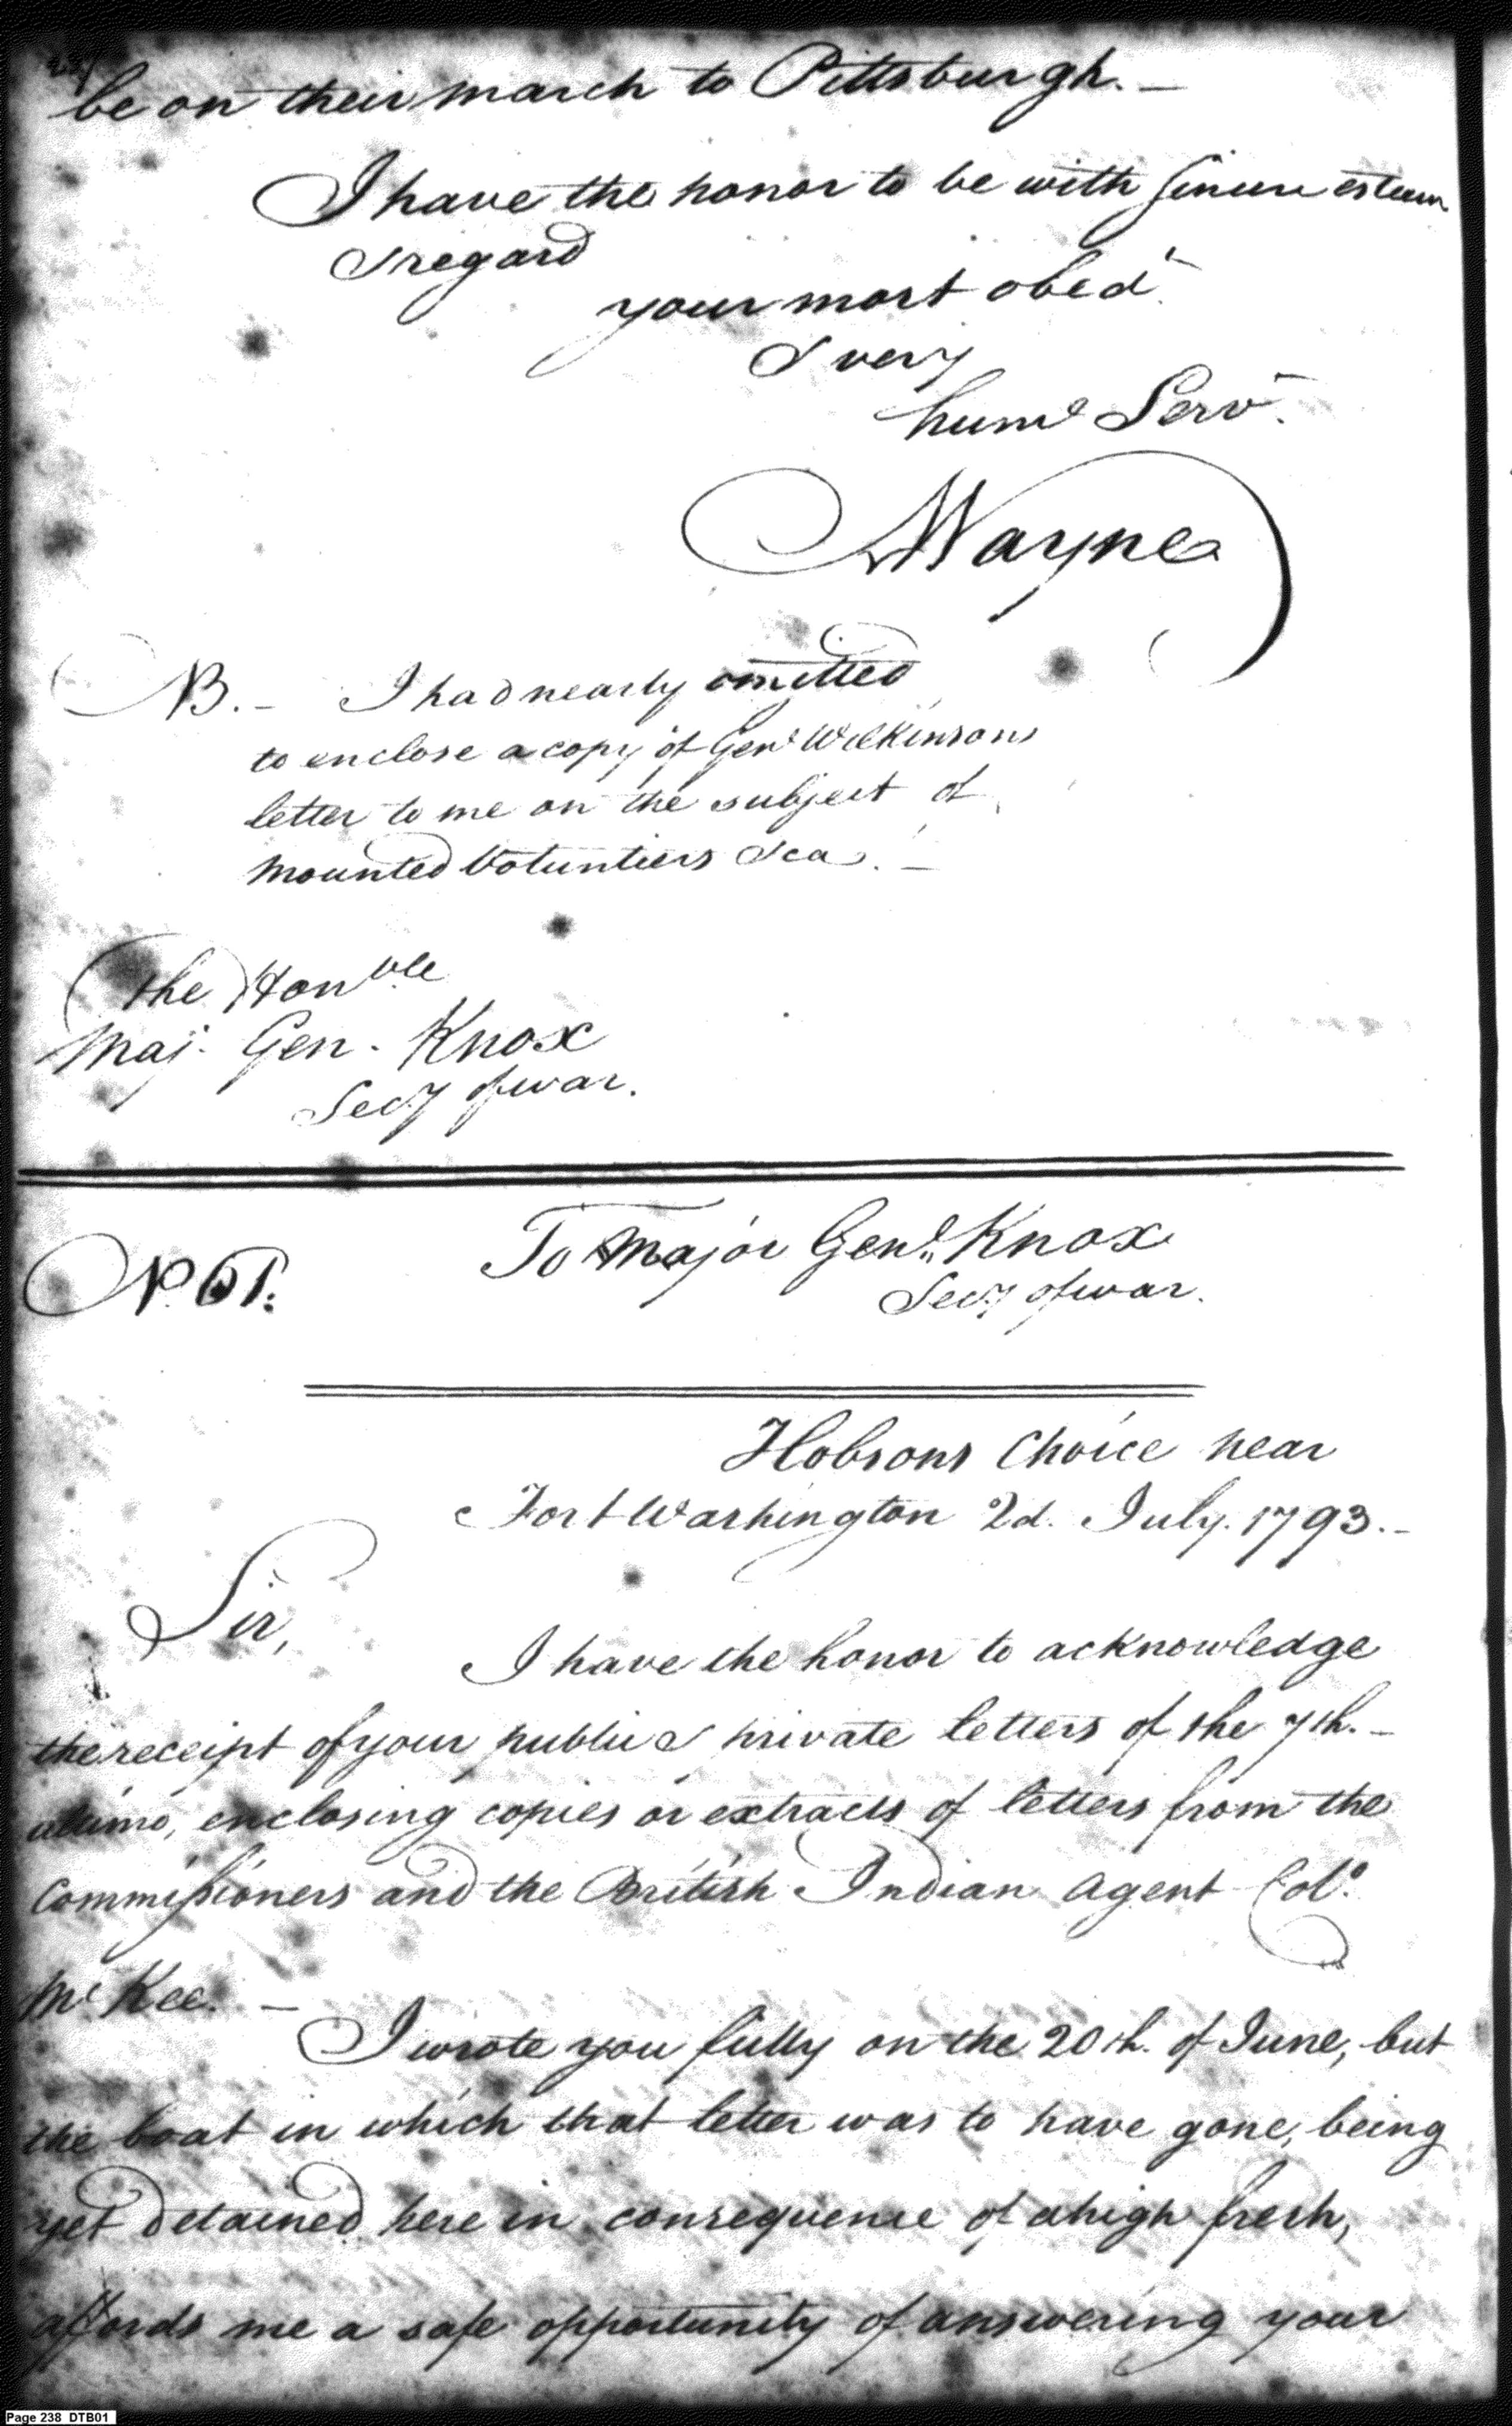 be on their march to Pittsburgh. —
I have the honor to be with sincere esteem
& regard
your most obedt.
& very
hume Servt.
AWayne
NB. — I had nearly omitted
to enclose a copy of Genl Wilkinsons
letter to me on the subject of
Mounted Voluntiers &ca. —
The Honble
Maj. Gen. Knox
Secy of war.
To Major Genl. Knox
No. 61.
Secy of war.
Hobsons Choice near
Fort Washington 2d. July. 1793. —
Sir,
I have the honor to acknowledge
the receipt of your public & private letters of the 7th. —
ultimo, enclosing copies or extracts of letters from the
Commissioners and the British Indian Agent Colo.
McKee. —
I wrote you fully on the 20th. of June, but
the boat in which that letter was to have gone, being
yet detained here in consequence of a high fresh,
affords me a safe opportunity of answering your
Page 238 DTB01